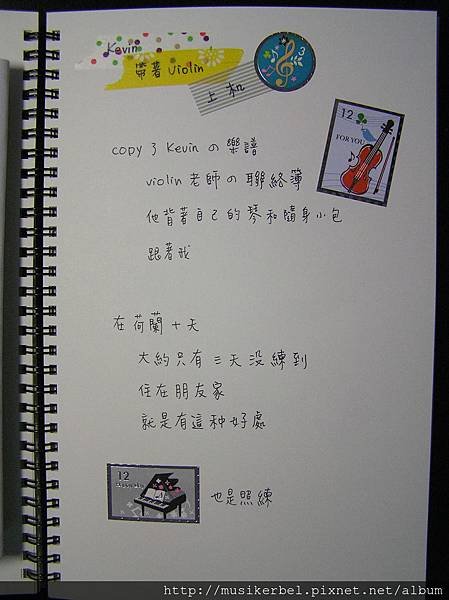 Kevin
帶著 Violin
上機
3
12
FOR YOU
COPY 了 Kevin の 樂譜
violin 老師の 聯絡簿
他背著自己的琴和隨身小包
跟著我
在荷蘭十天
大約只有三天沒練到
住在朋友家
就是有這种好處
12
也是照練
http://musikerbel.pixnet.net/album